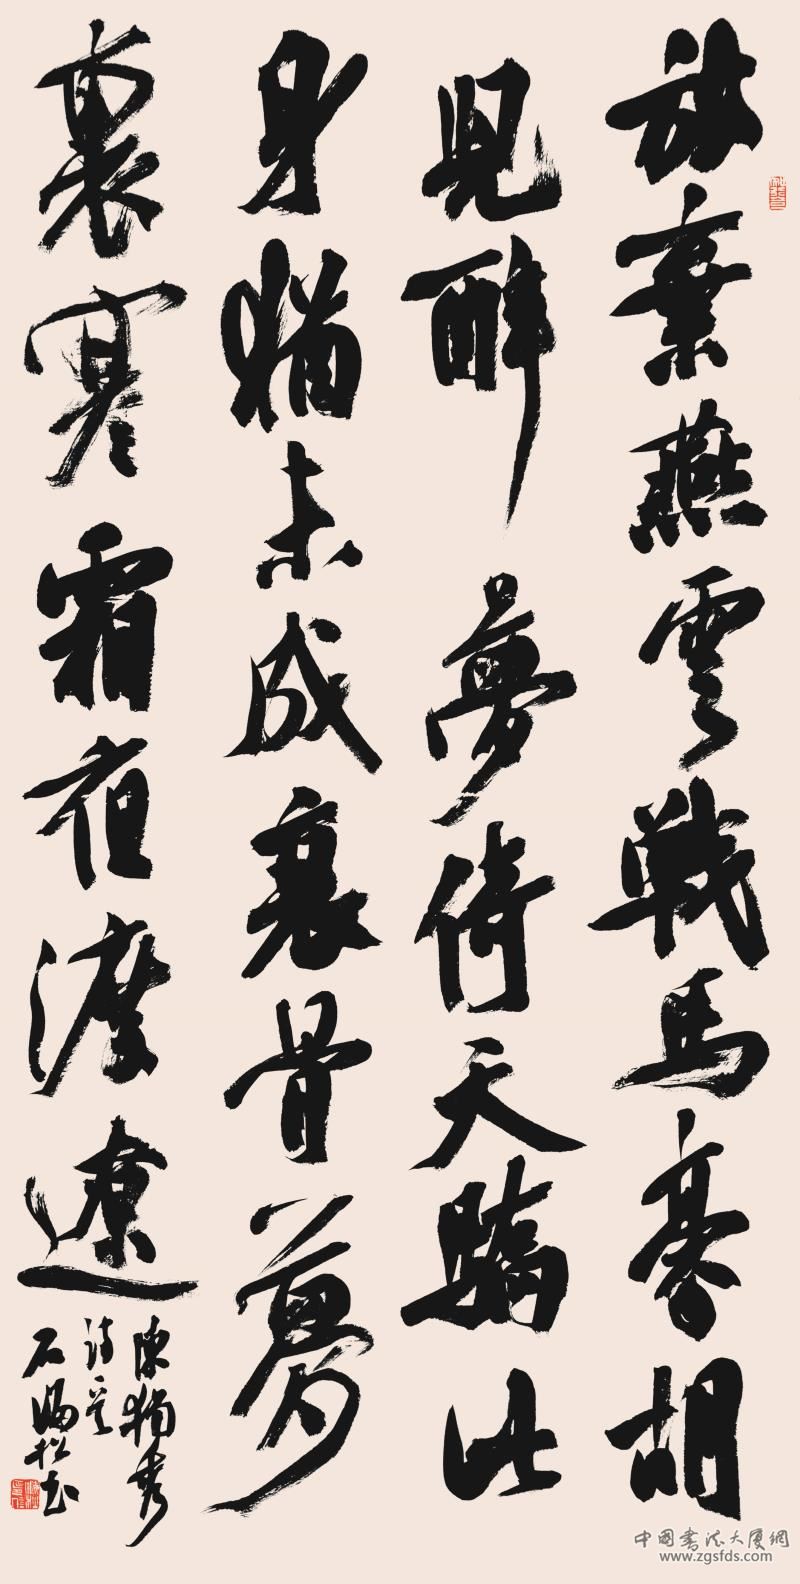 放棄燕雲戰馬豪胡
兒醉夢倚天驕此
身猶未成衰骨夢
裏寒霜夜渡遼
陳獨秀
詩
石 松书
中國書法大廈網
www.zgsfds.com